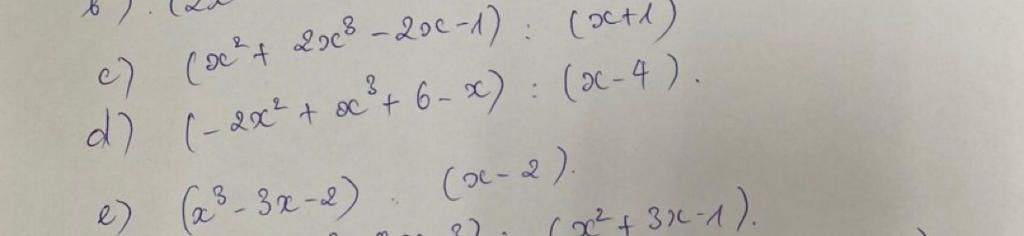 b) . (2x
c) (x² + 2x³ - 2x - 1) : (x+1)
d) (- 2x² + x³ + 6 - x) : (x - 4).
e) (x³ - 3x - 2) : (x - 2).
: (x² + 3x - 1).